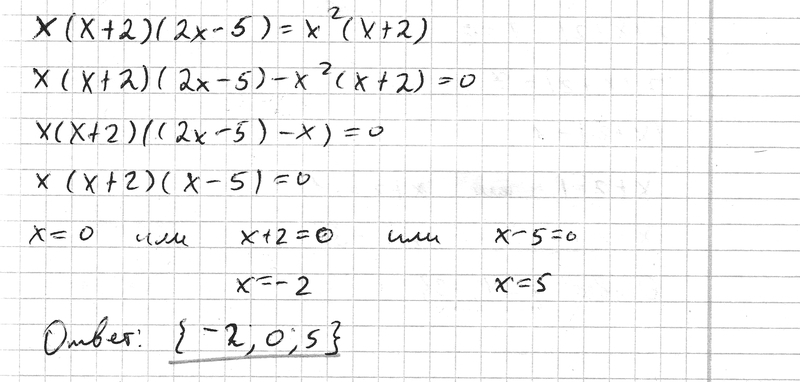 x(x+2)(2x-5)=x²(x+2)
x(x+2)(2x-5)-x²(x+2)=0
x(x+2)((2x-5)-x)=0
x(x+2)(x-5)=0
x=0 или x+2=0 или x-5=0
x=-2 x=5
Ответ: {-2; 0; 5}